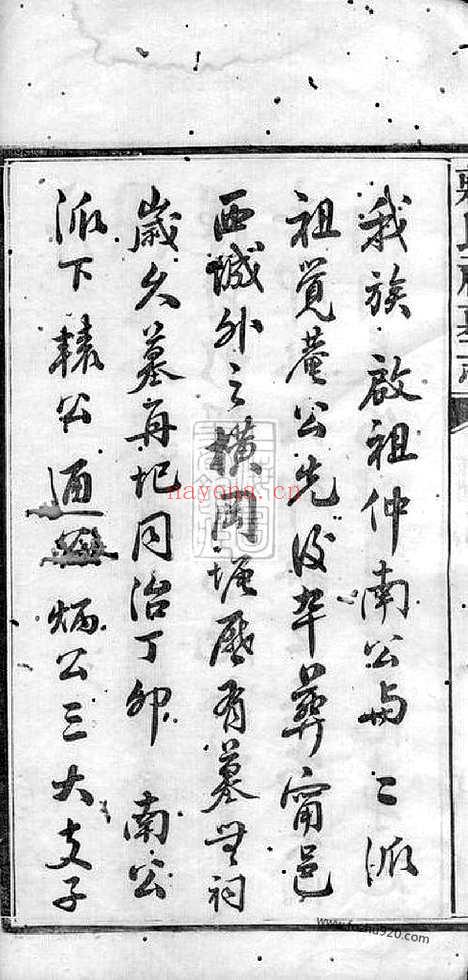 我族啟祖仲南公與二派
祖覺菴公先後卒葬甯邑
西城外之橫岡塘歷有墓無祠
歲久墓再圮同治丁卯 南公
派下轅公通公炳公三大支子
nayona.cn
www.fozhu920.com